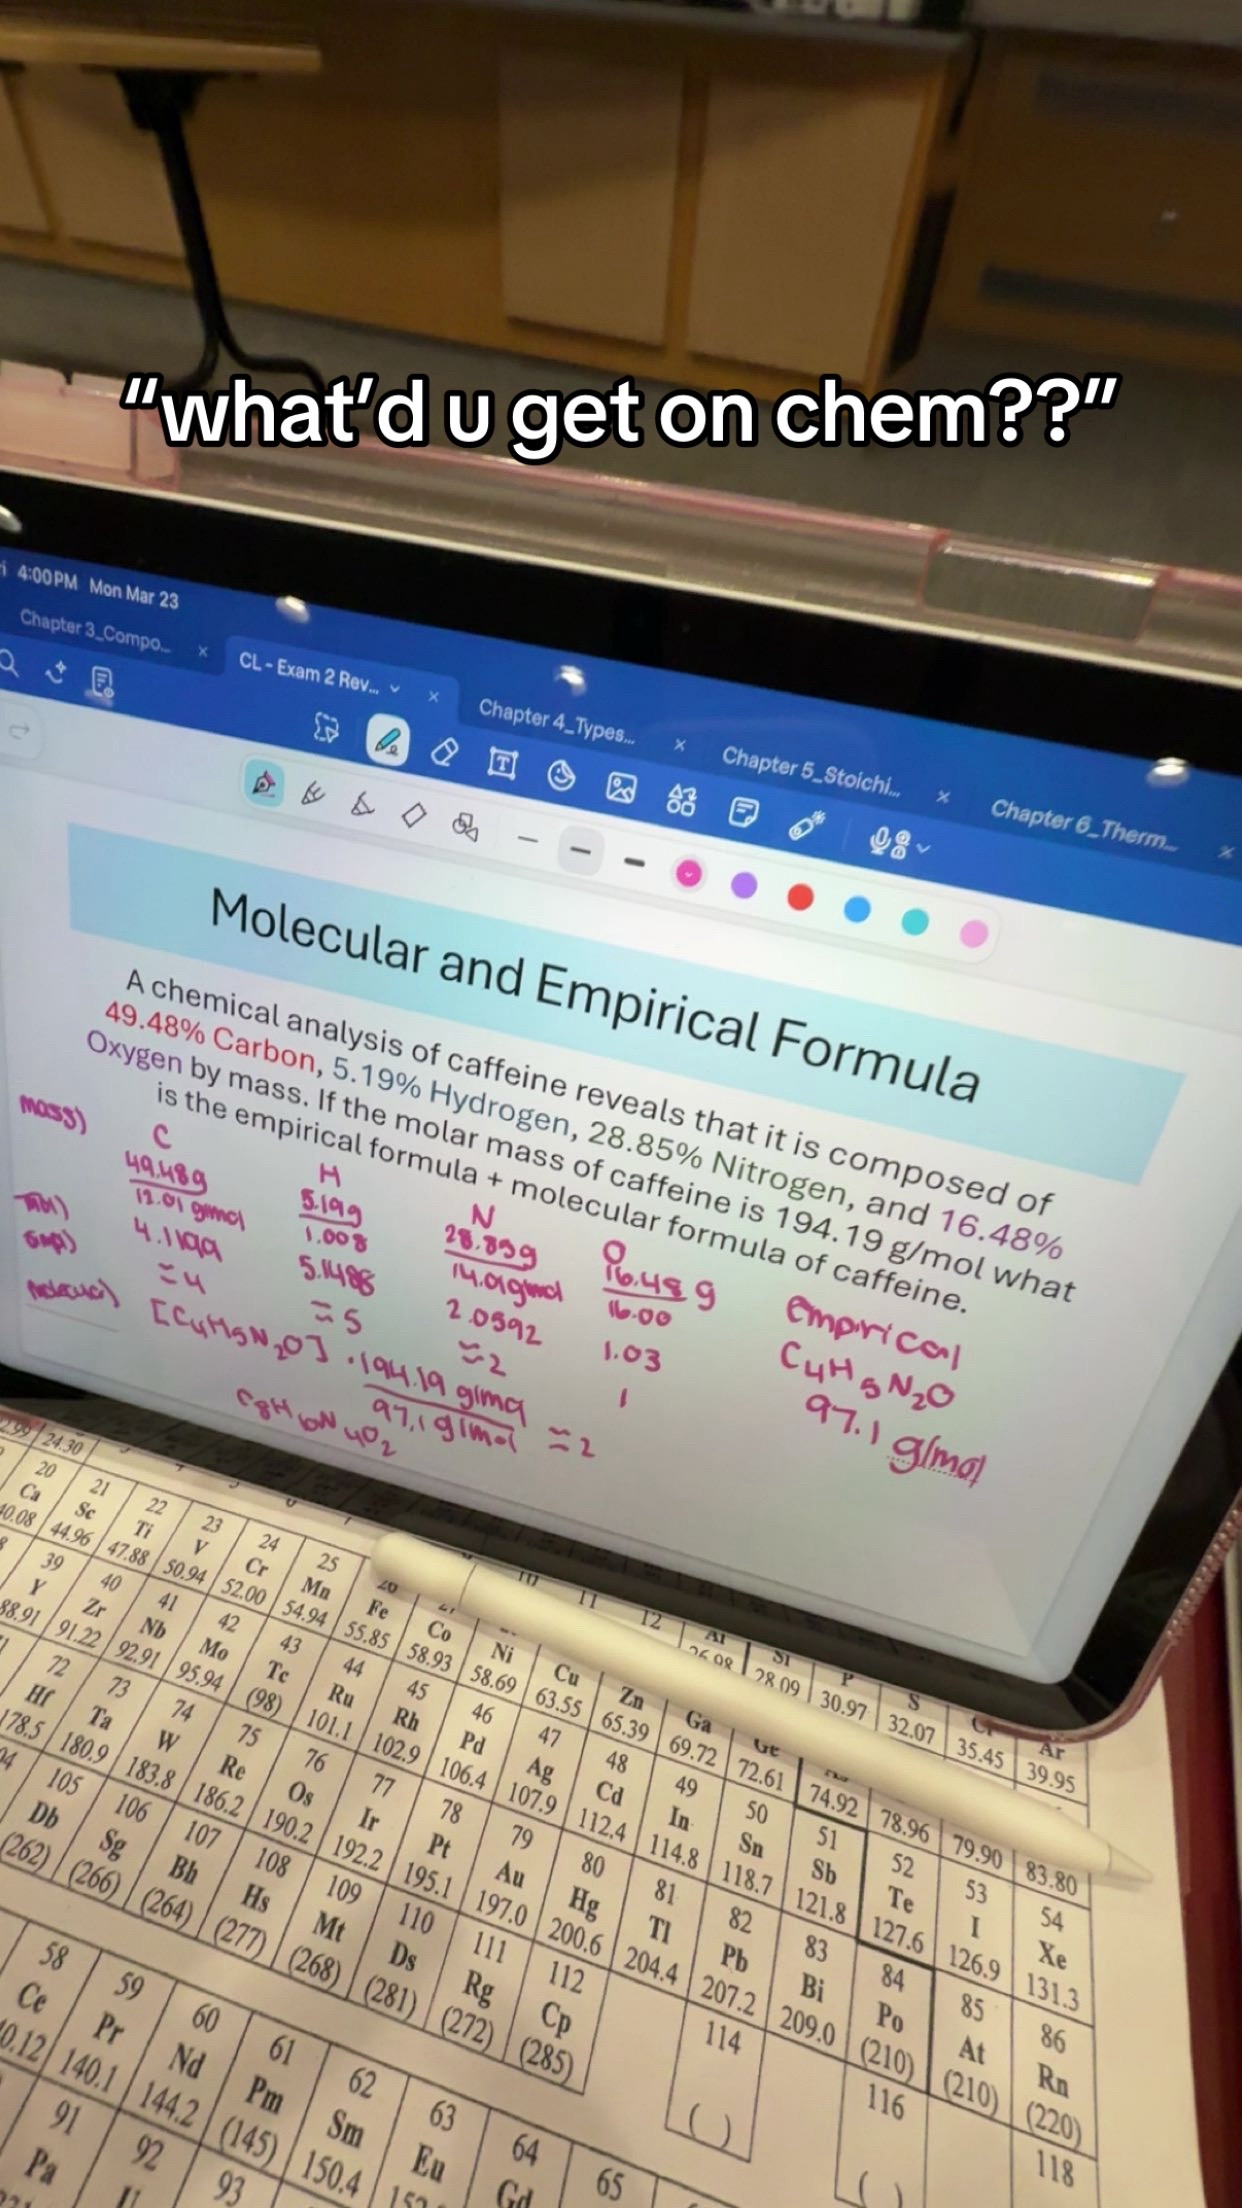 “what’d u get on chem??”
4:00PM Mon Mar 23
Chapter 3_Compo...
CL - Exam 2 Rev...
Chapter 4_Types...
Chapter 5_Stoichi...
Chapter 6_Therm...
Molecular and Empirical Formula
A chemical analysis of caffeine reveals that it is composed of
49.48% Carbon, 5.19% Hydrogen, 28.85% Nitrogen, and 16.48%
Oxygen by mass. If the molar mass of caffeine is 194.19 g/mol what
is the empirical formula + molecular formula of caffeine.
mass)
C H N O
49.48g 5.19g 28.85g 16.48 g
12.01 g/mol 1.008 14.01g/mol 16.00
mol)
4.1199 5.1488 2.0592 1.03
emp)
≈4 ≈5 ≈2 1
empirical
C4H5N2O
97.1 g/mol
molecul)
[C4H5N2O] · 194.19 g/mol
97.1 g/mol ≈2
C8H10N4O2
24.30
20 21 22 23 24 25
Ca Sc Ti V Cr Mn Fe Co Ni Cu Zn Ga Ge
40.08 44.96 47.88 50.94 52.00 54.94 55.85 58.93 58.69 63.55 65.39 69.72 72.61 74.92 78.96 79.90 83.80
10 11 12
Al Si P S Cl Ar
26.98 28.09 30.97 32.07 35.45 39.95
39 40 41 42 43 44 45 46 47 48 49 50 51 52 53 54
Y Zr Nb Mo Tc Ru Rh Pd Ag Cd In Sn Sb Te I Xe
88.91 91.22 92.91 95.94 (98) 101.1 102.9 106.4 107.9 112.4 114.8 118.7 121.8 127.6 126.9 131.3
72 73 74 75 76 77 78 79 80 81 82 83 84 85 86
Hf Ta W Re Os Ir Pt Au Hg Tl Pb Bi Po At Rn
178.5 180.9 183.8 186.2 190.2 192.2 195.1 197.0 200.6 204.4 207.2 209.0 (210) (210) (220)
105 106 107 108 109 110 111 112 114 116 118
Db Sg Bh Hs Mt Ds Rg Cp
(262) (266) (264) (277) (268) (281) (272) (285) ( )
58 59 60 61 62 63 64 65
Ce Pr Nd Pm Sm Eu Gd
140.1 144.2 (145) 150.4
91 92 93
Pa